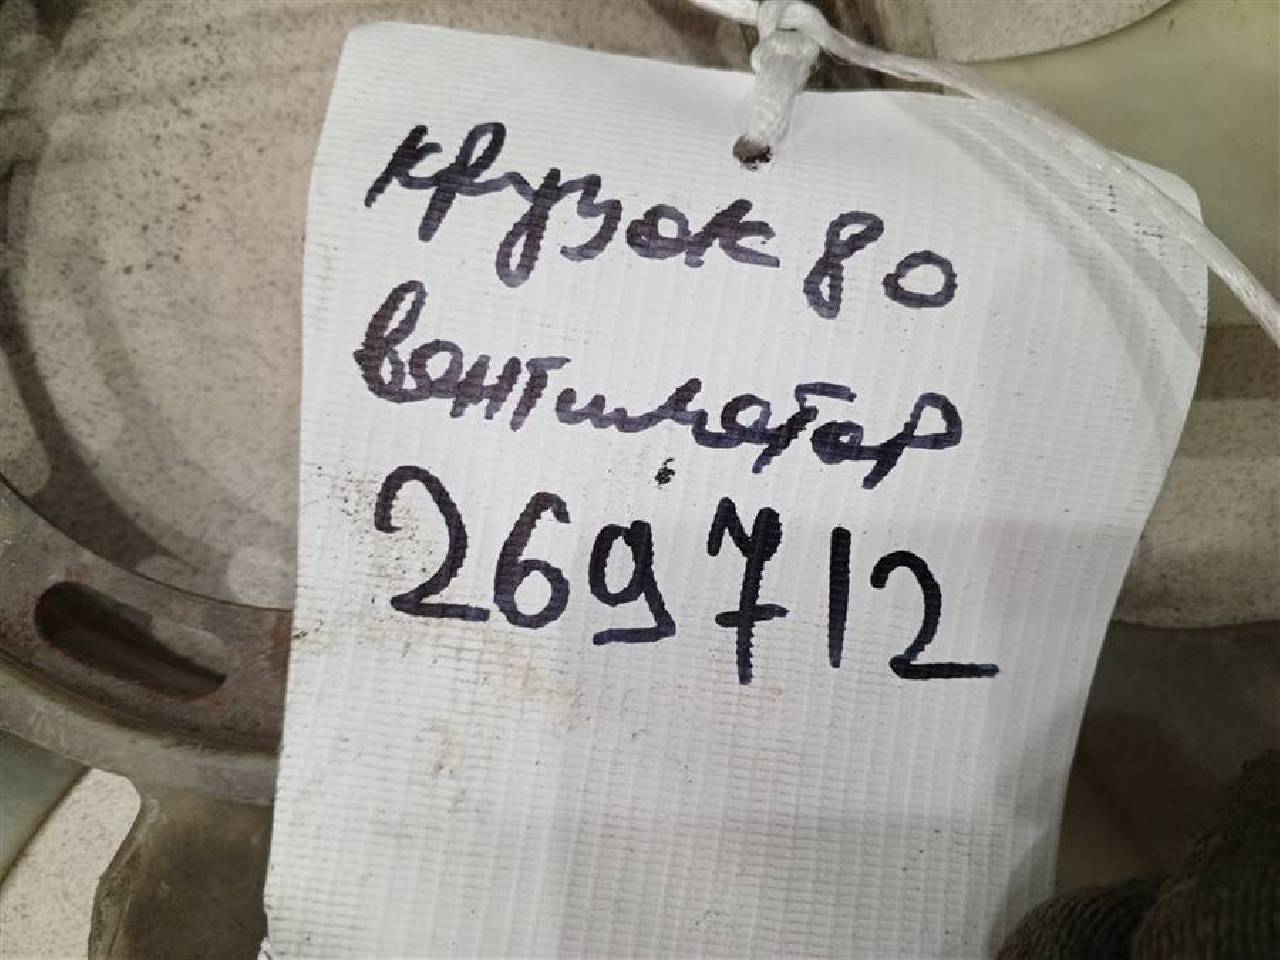 крузак 80
вентилятор
269712